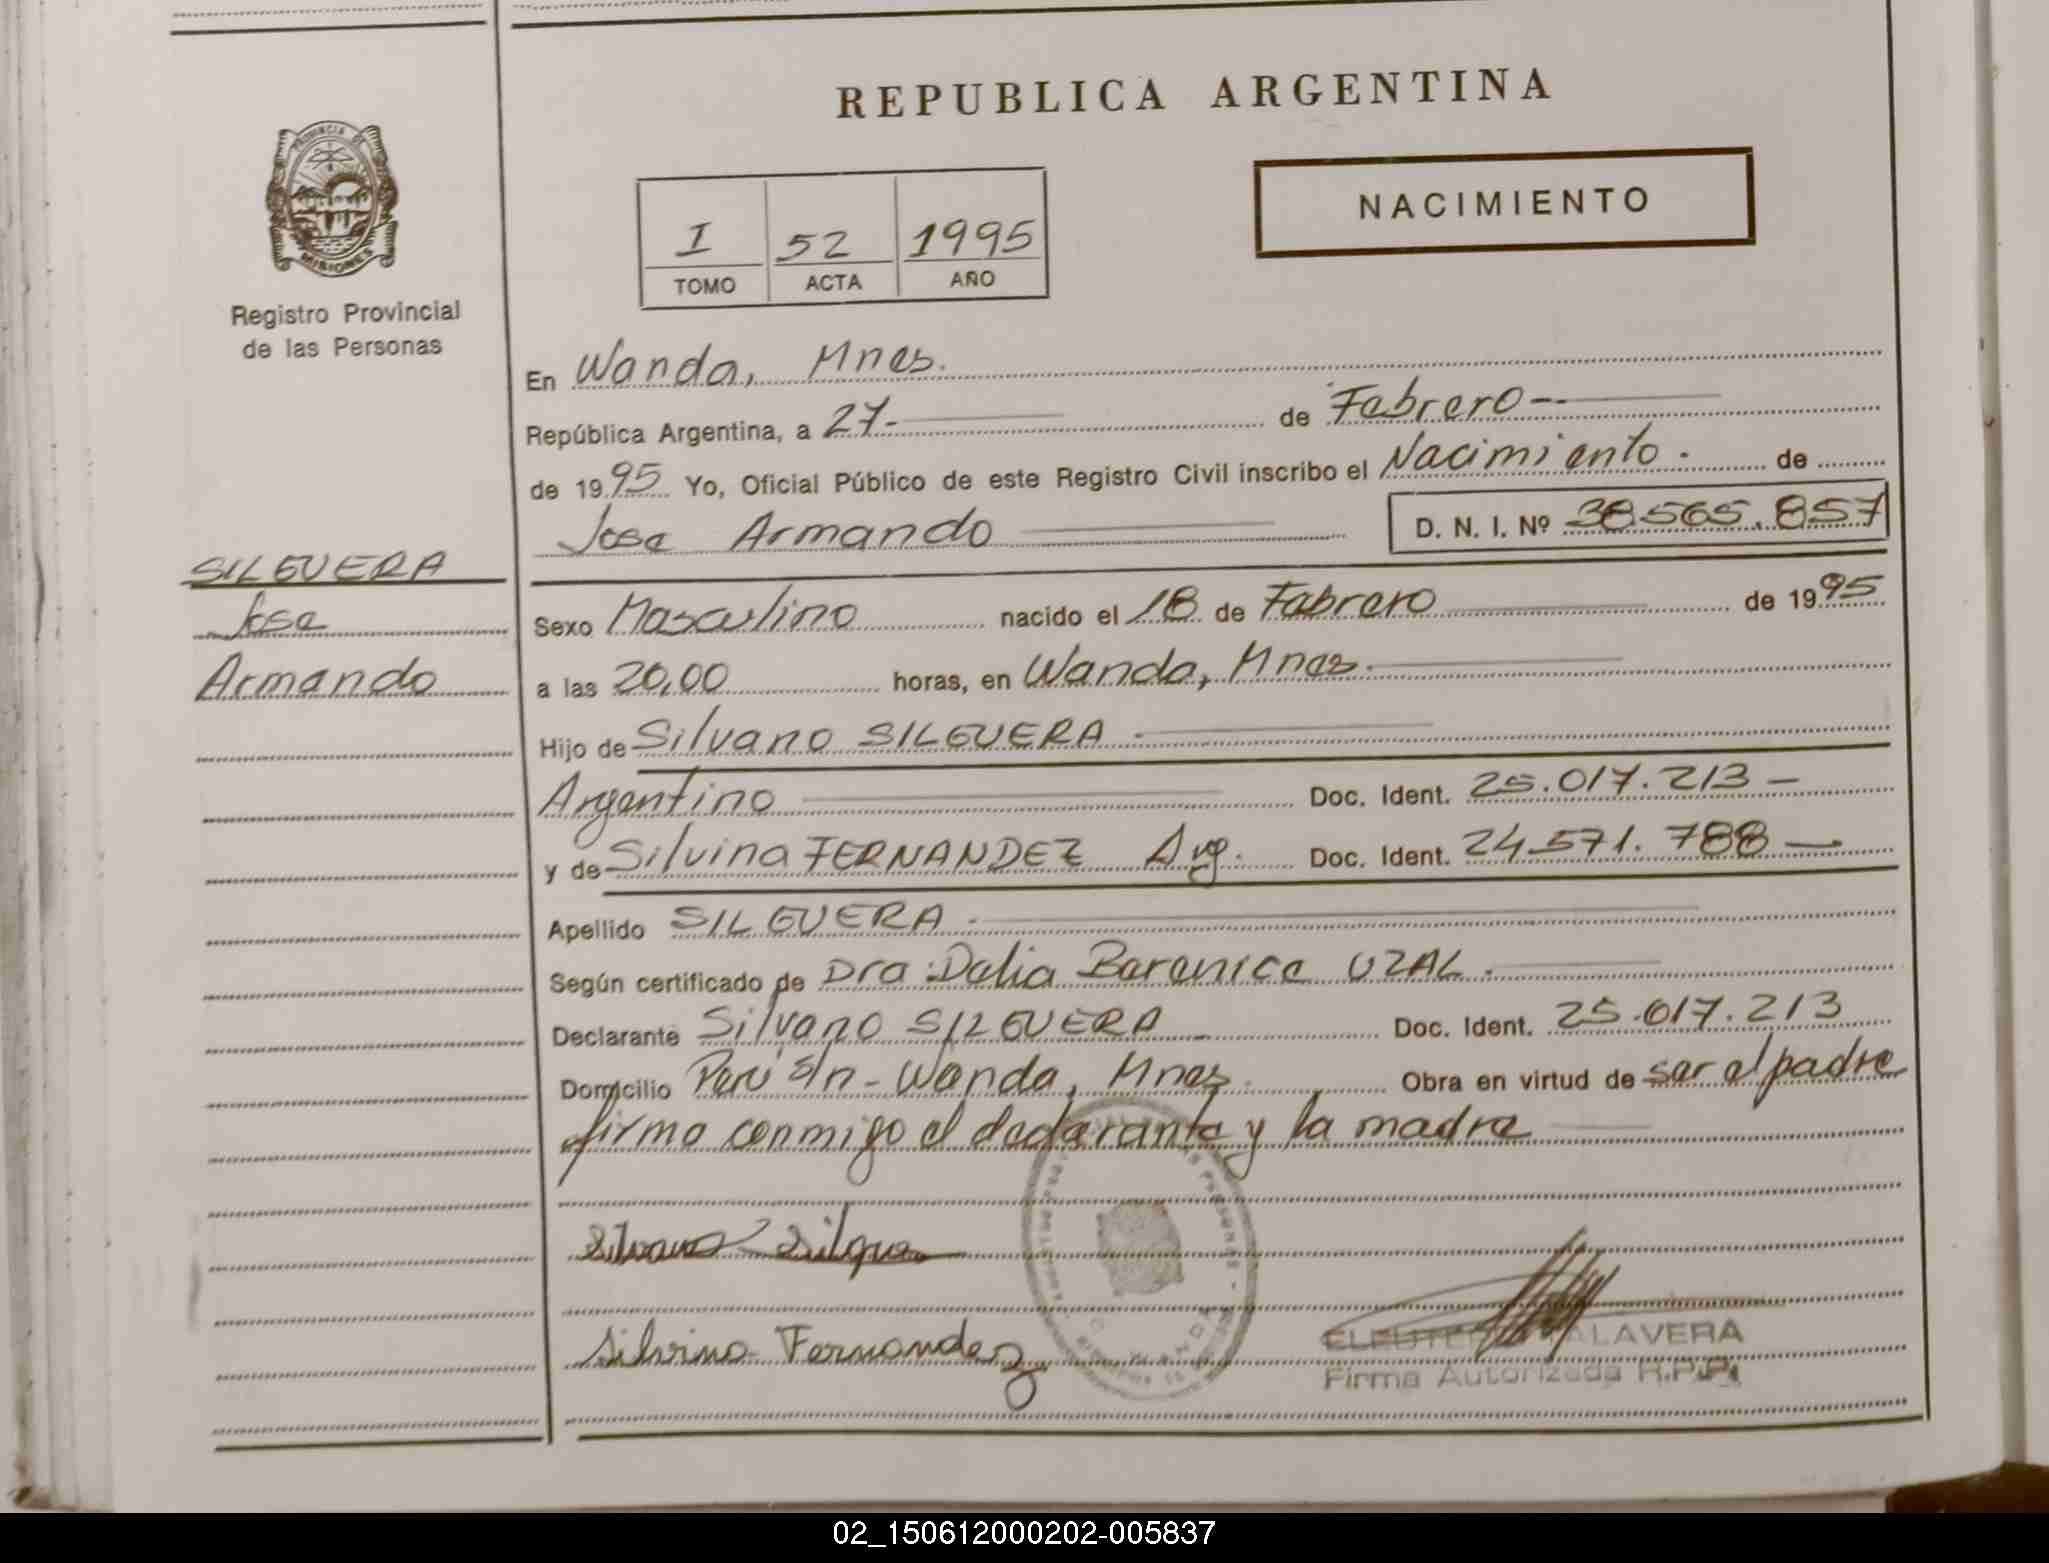 REPUBLICA ARGENTINA
PROVINCIA DE
MISIONES
Registro Provincial
de las Personas
NACIMIENTO
I 52 1995
TOMO ACTA AÑO
En Wanda, Mnes.
República Argentina, a 27.- de Febrero--
de 1995 Yo, Oficial Público de este Registro Civil inscribo el Nacimiento. de
Jose Armando D. N. I. Nº 38.565.857
SILGUERA
Jose
Armando
Sexo Masculino nacido el 18 de Febrero de 1995
a las 20,00 horas, en Wanda, Mnes.
Hijo de Silvano SILGUERA.
Argentino Doc. Ident. 25.017.213 -
y de Silvina FERNANDEZ Arg. Doc. Ident. 24.571.788 -
Apellido SILGUERA.
Según certificado de Dra. Dalia Berenice UZAL.
Declarante Silvano SILGUERA Doc. Ident. 25.017.213
Domicilio Perú s/n - Wanda, Mnes. Obra en virtud de ser el padre
firma conmigo el declarante y la madre
Silvano Silguera
Silvina Fernandez
TALAVERA
Firma Autorizada R.P.P.
WANDA
02_150612000202-005837